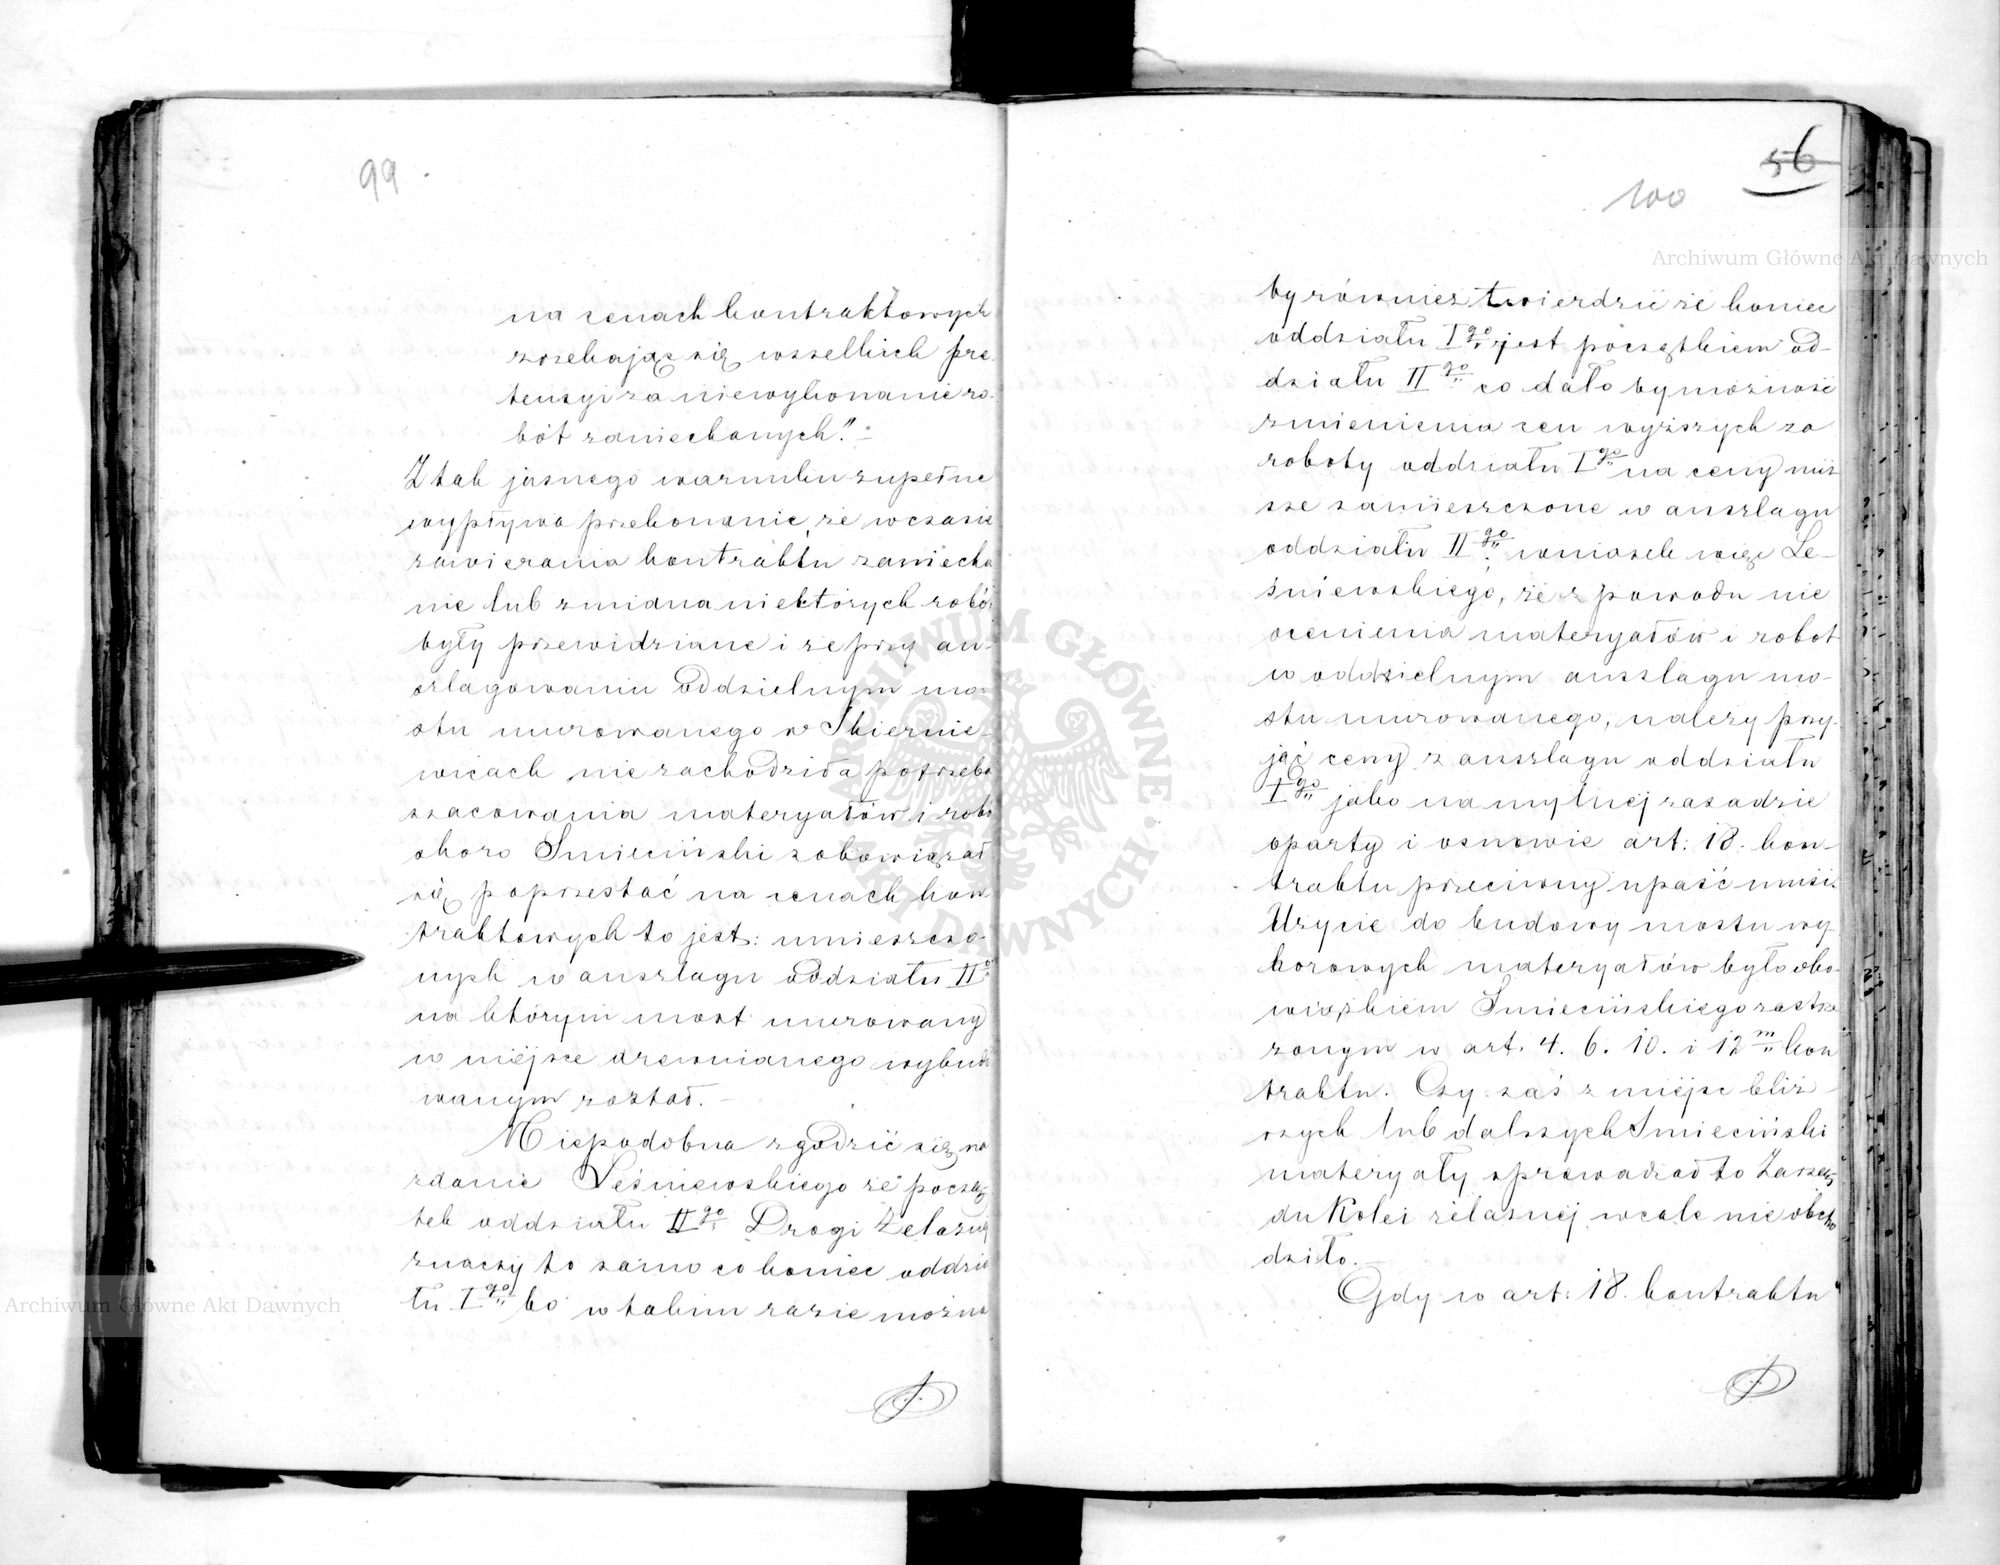 99.
na cenach kontraktowych
zrzekając się wszelkich pre
tensyi za niewykonanie ro-
bót zaniechanych."
Z tak jasnego warunku zupełne
wypływa przekonanie, że w czasie
zawierania kontraktu zaniecha
nie lub zmiana niektórych robó
były przewidziane i że przy an-
szlagowaniu oddzielnym mo-
stu murowanego w Skiernie-
wicach nie zachodziła potrzeba
szacowania materyałów i robó
skoro Smieciński zobowiązał
się poprzestać na cenach kon
traktowych to jest: umieszczo-
nych w anszlagu oddziału II°
na którym most murowany
w miejsce drewnianego wybudo
wanym został. –
Niepodobna zgodzić się na
zdanie Leśniewskiego że począ
tek oddziału II go Drogi Żelaznej
znaczy to samo co koniec oddzia
łu I go bo w takim razie można
56
100
by również twierdzić że koniec
oddziału I go jest początkiem od-
działu II go co dało by możność
zmienienia cen wyższych za
roboty oddziału I go na ceny niż
sze zamieszczone w anszlagu
oddziału II go wniosek więc Le-
śniewskiego, że z powodu nie
ocenienia materyałów i robot
w oddzielnym anszlagu mo-
stu murowanego, należy przy-
jąć ceny z anszlagu oddziału
I go jako na mylnej zasadzie
oparty i osnowie art: 18. kon-
traktu przeciwny upaść musi.
Użycie do budowy mostu wy
borowych materyałów było obo-
wiązkiem Smiecińskiego zastrze
żonym w art. 4. 6. 10. i 12 m kon
traktu. Czy zaś z miejsc bliż-
szych lub dalszych Smieciński
materyały sprowadzał to Zarzą
du Kolei żelaznej wcale nie obcho
dziło. –
Gdy w art: 18. kontraktu
Archiwum Główne Akt Dawnych
Archiwum Główne Akt Dawnych
ARCHIWUM GŁÓWNE AKT DAWNYCH